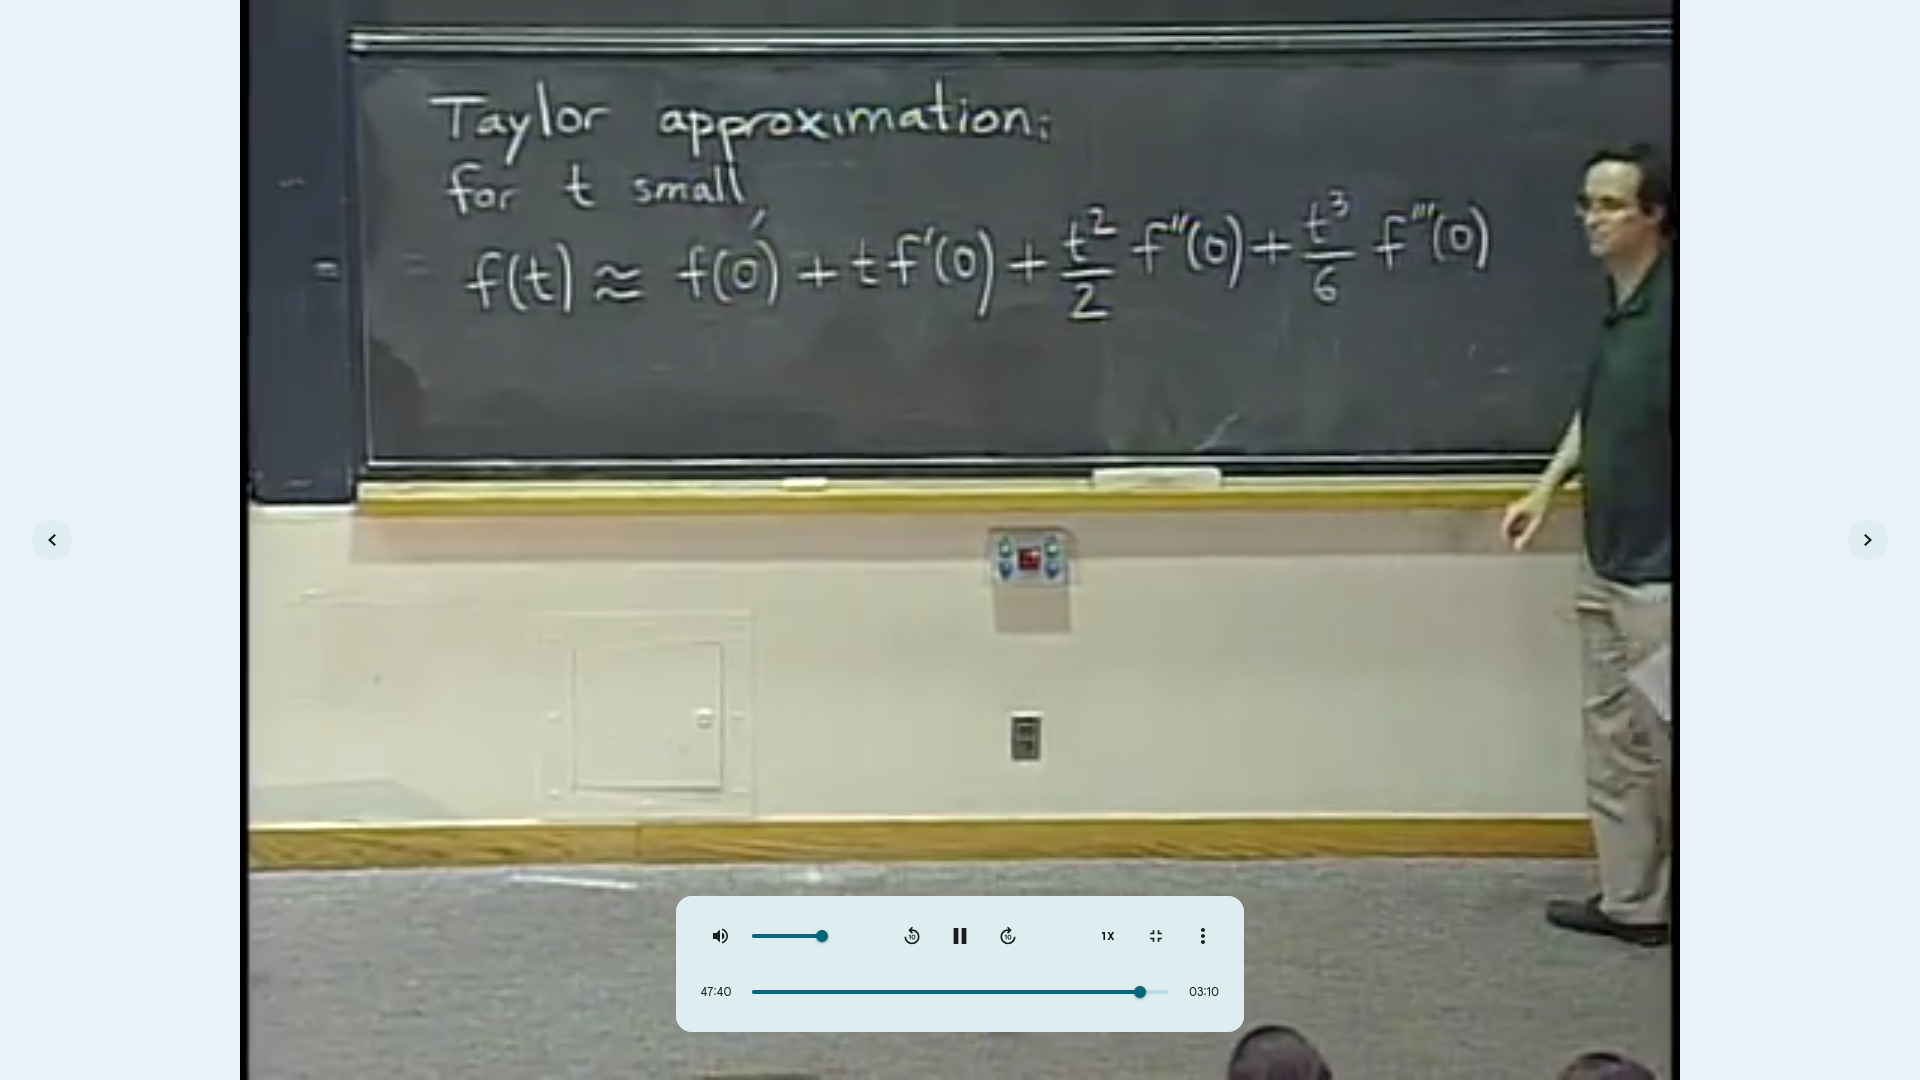 Taylor approximation:
for t small,
f(t) ≈ f(0) + t f'(0) + t²/2 f''(0) + t³/6 f'''(0)
1X
47:40
03:10